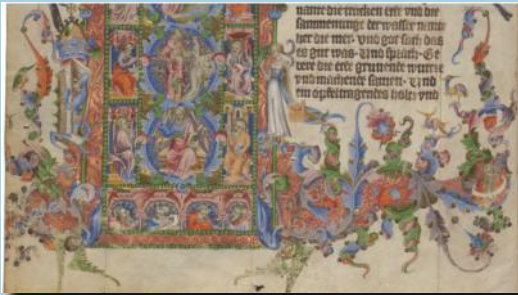 nante die trucken ert vnd die
sammenunge der wasser nante
her die mer· vnd got sach das
es gut was· Vnd sprach· Ge
bere die erde grunende wurtze
vnd machende samen· Vnd
ein opfeltragendes holtz vnd